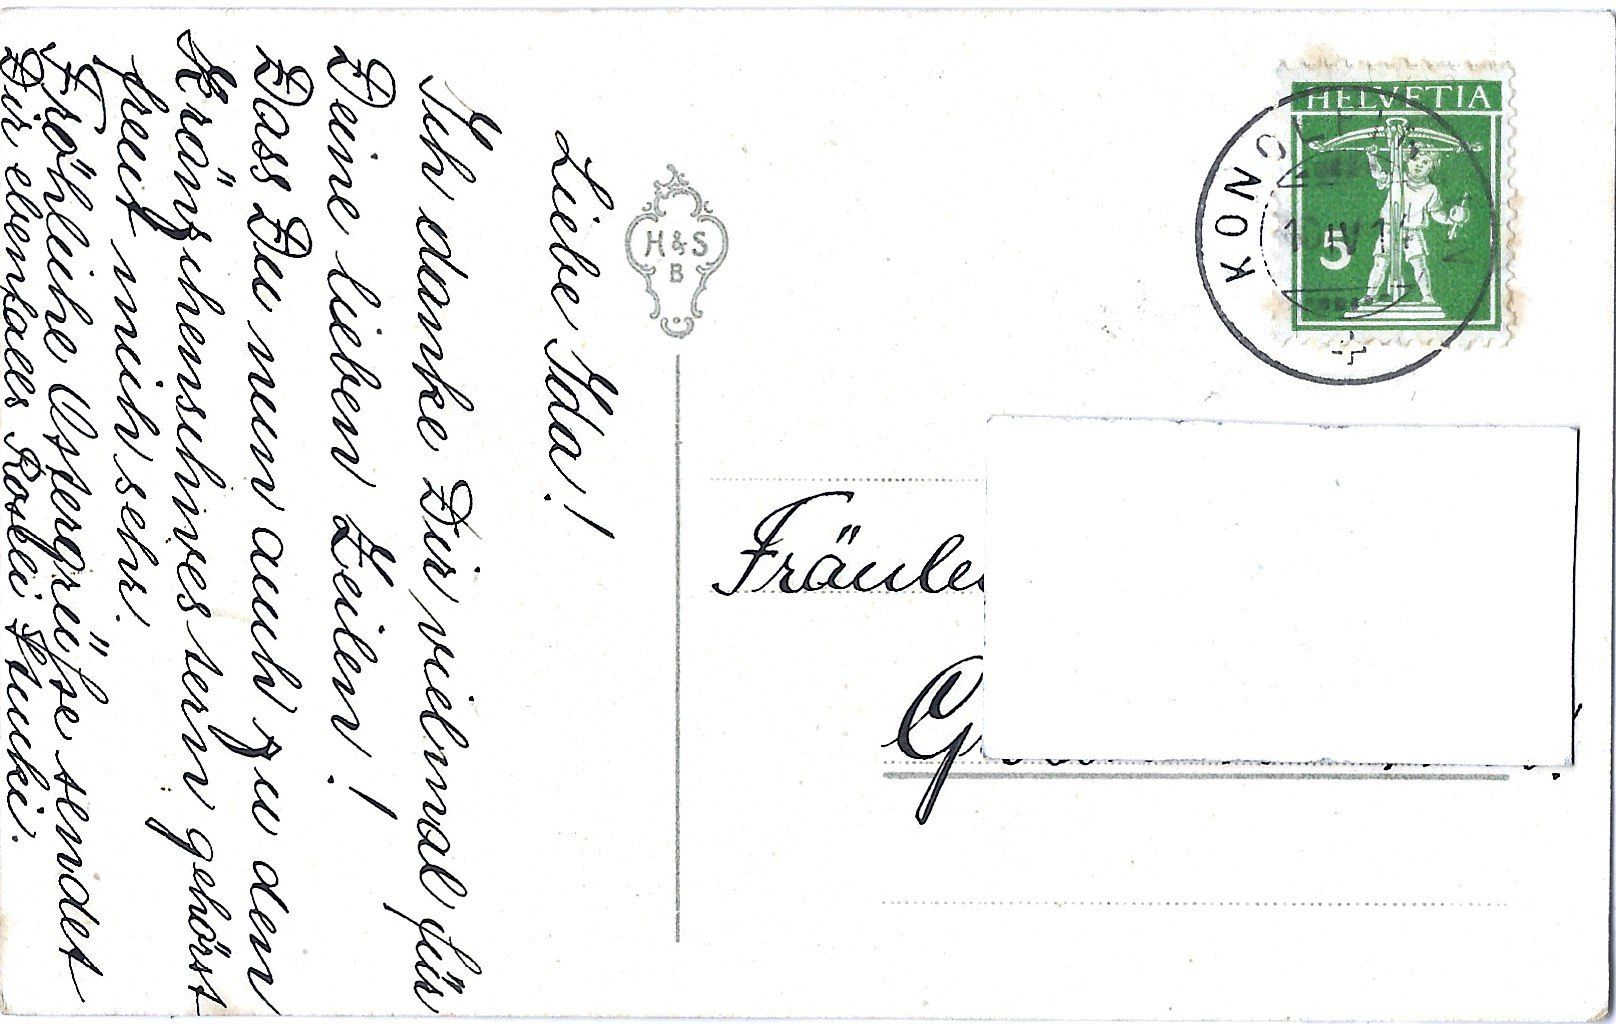 Liebe Ida!
Ich danke Dir vielmal für
Deine lieben Zeilen!
Dass Du nun auch zu den
Kränzchenschwestern gehörst
freut mich sehr.
Fröhliche Ostergrüsse sendet
Dir ebenfalls Rosli Stucki.
H&S
B
HELVETIA
5
KONOLF
IV